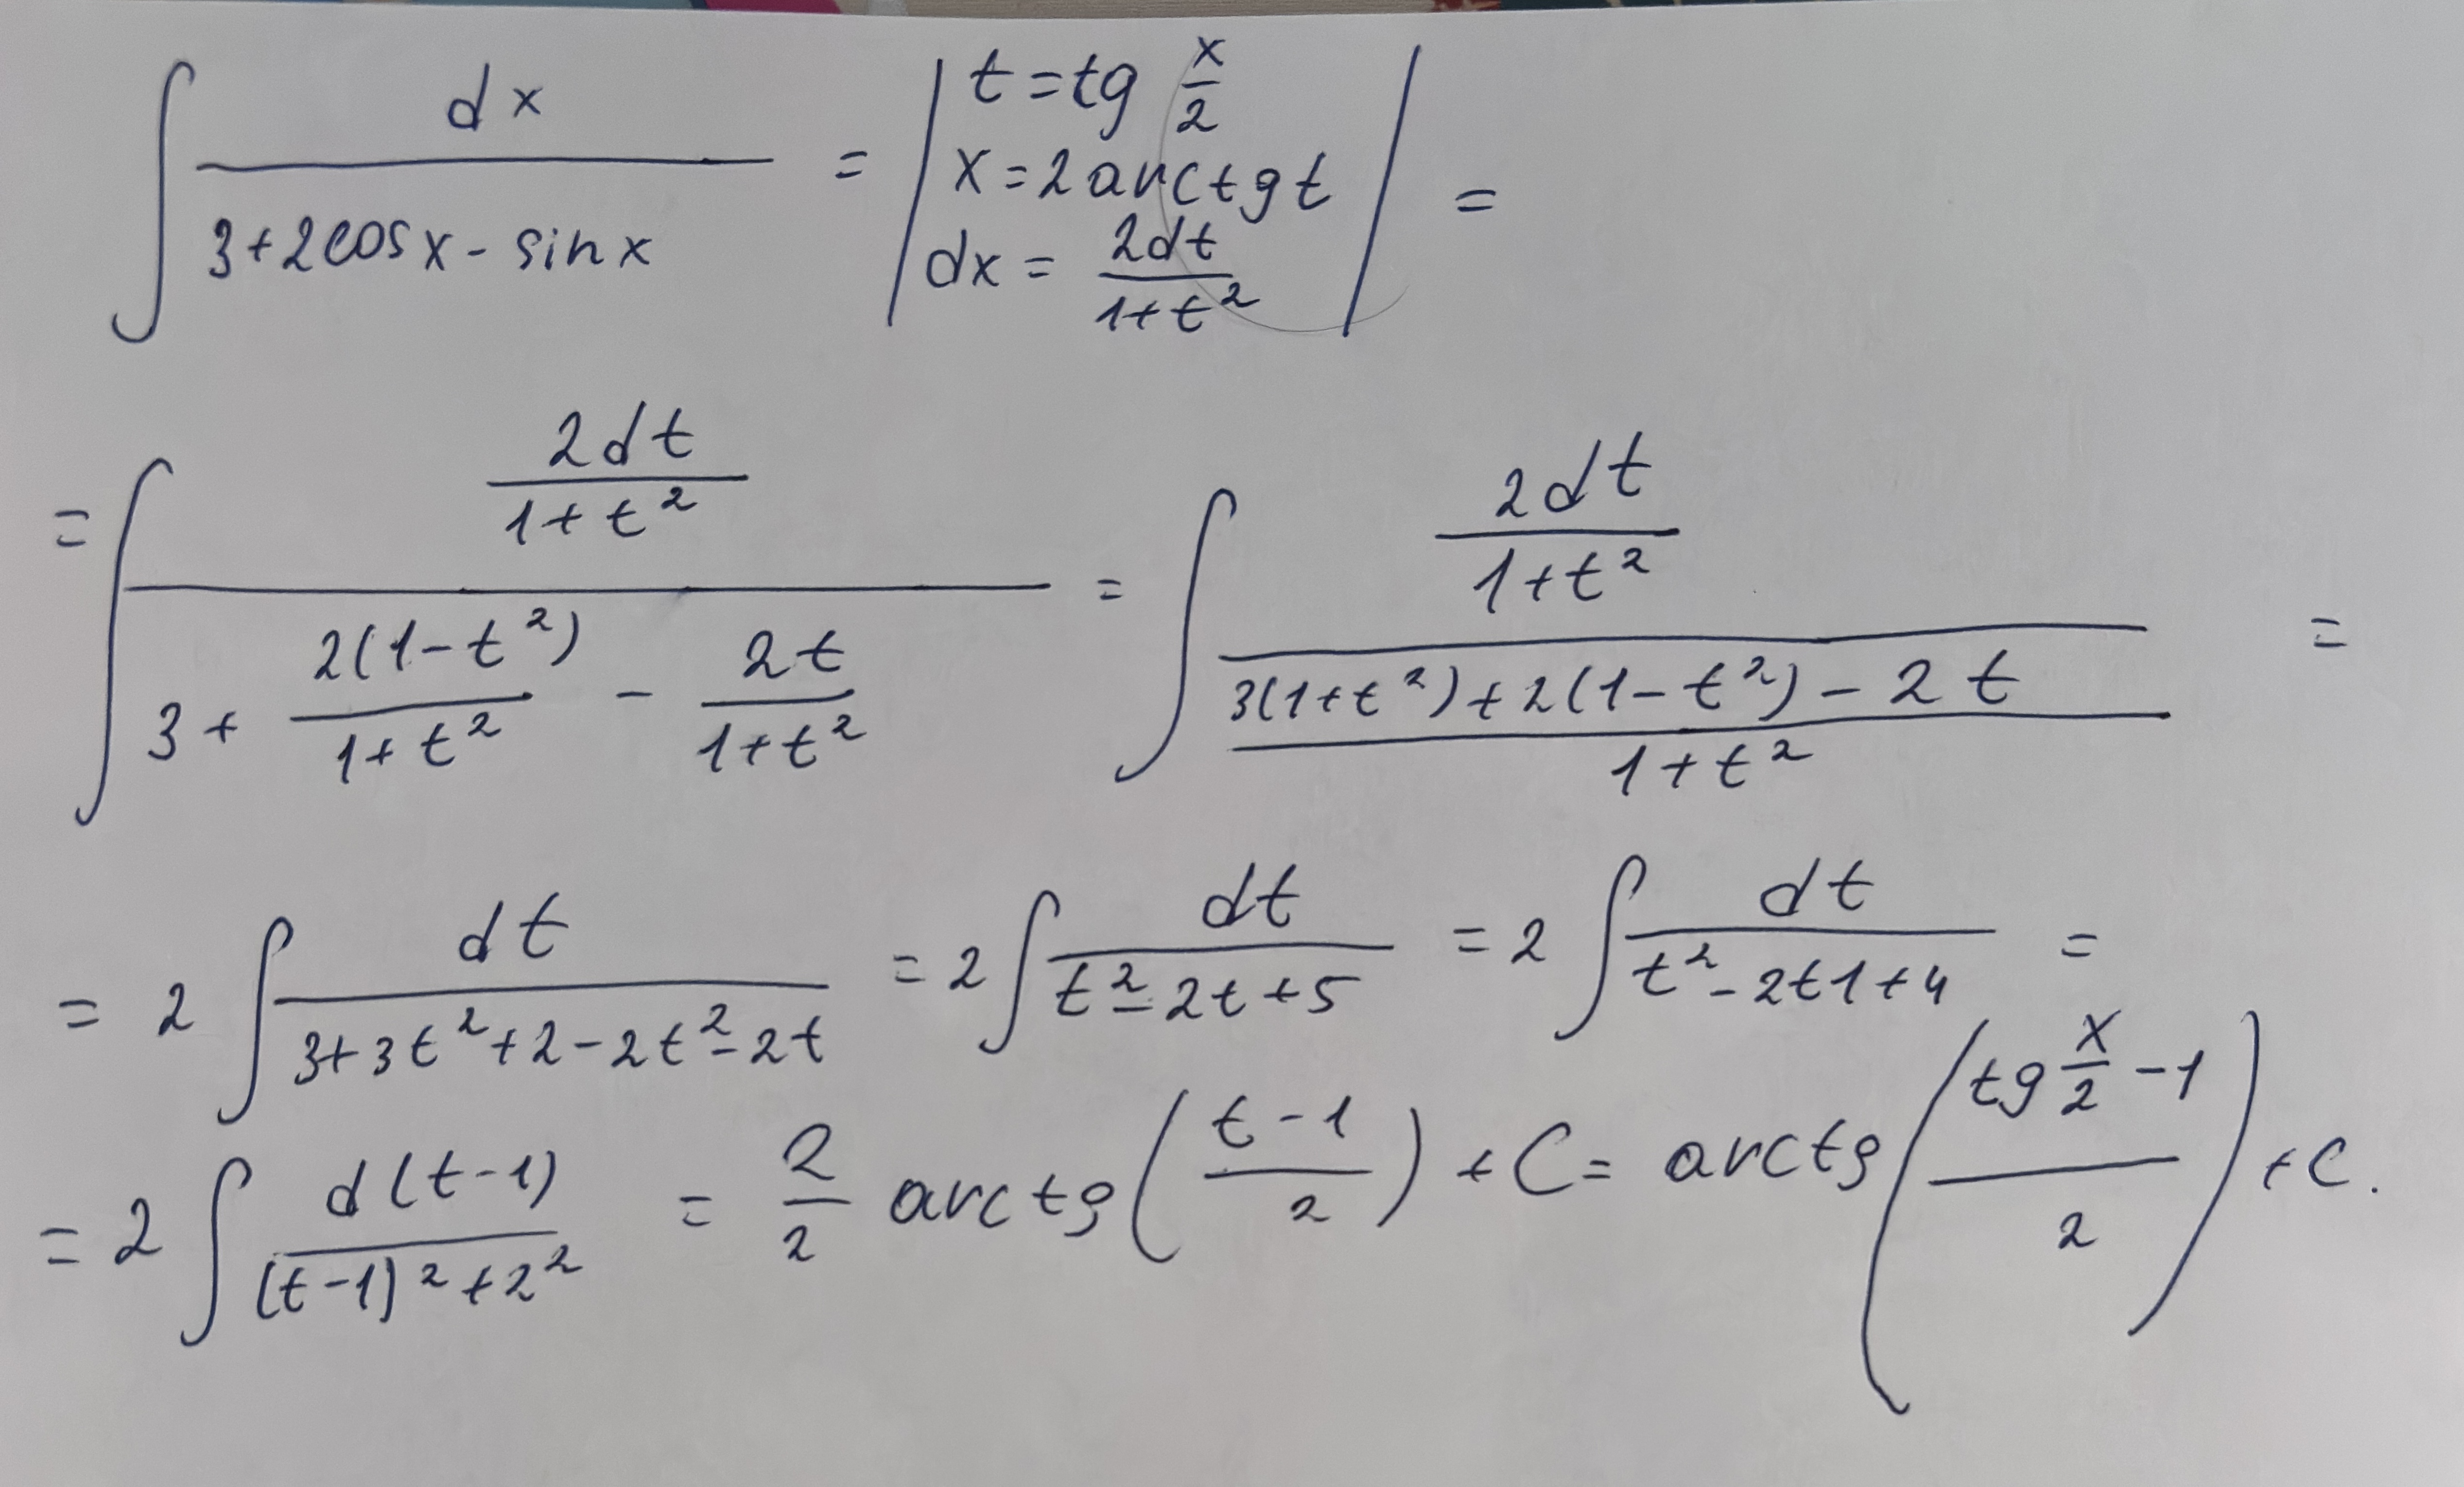 ∫ dx / (3+2cosx - sinx) = | t = tg x/2; x = 2arctgt; dx = 2dt / (1+t²) | =
= ∫ (2dt / (1+t²)) / (3 + 2(1-t²) / (1+t²) - 2t / (1+t²)) = ∫ (2dt / (1+t²)) / ((3(1+t²)+2(1-t²)-2t) / (1+t²)) =
= 2 ∫ dt / (3+3t²+2-2t²-2t) = 2 ∫ dt / (t²-2t+5) = 2 ∫ dt / (t²-2t1+4) =
= 2 ∫ d(t-1) / ((t-1)²+2²) = 2/2 arctg((t-1) / 2) + C = arctg((tg x/2 - 1) / 2) + C.